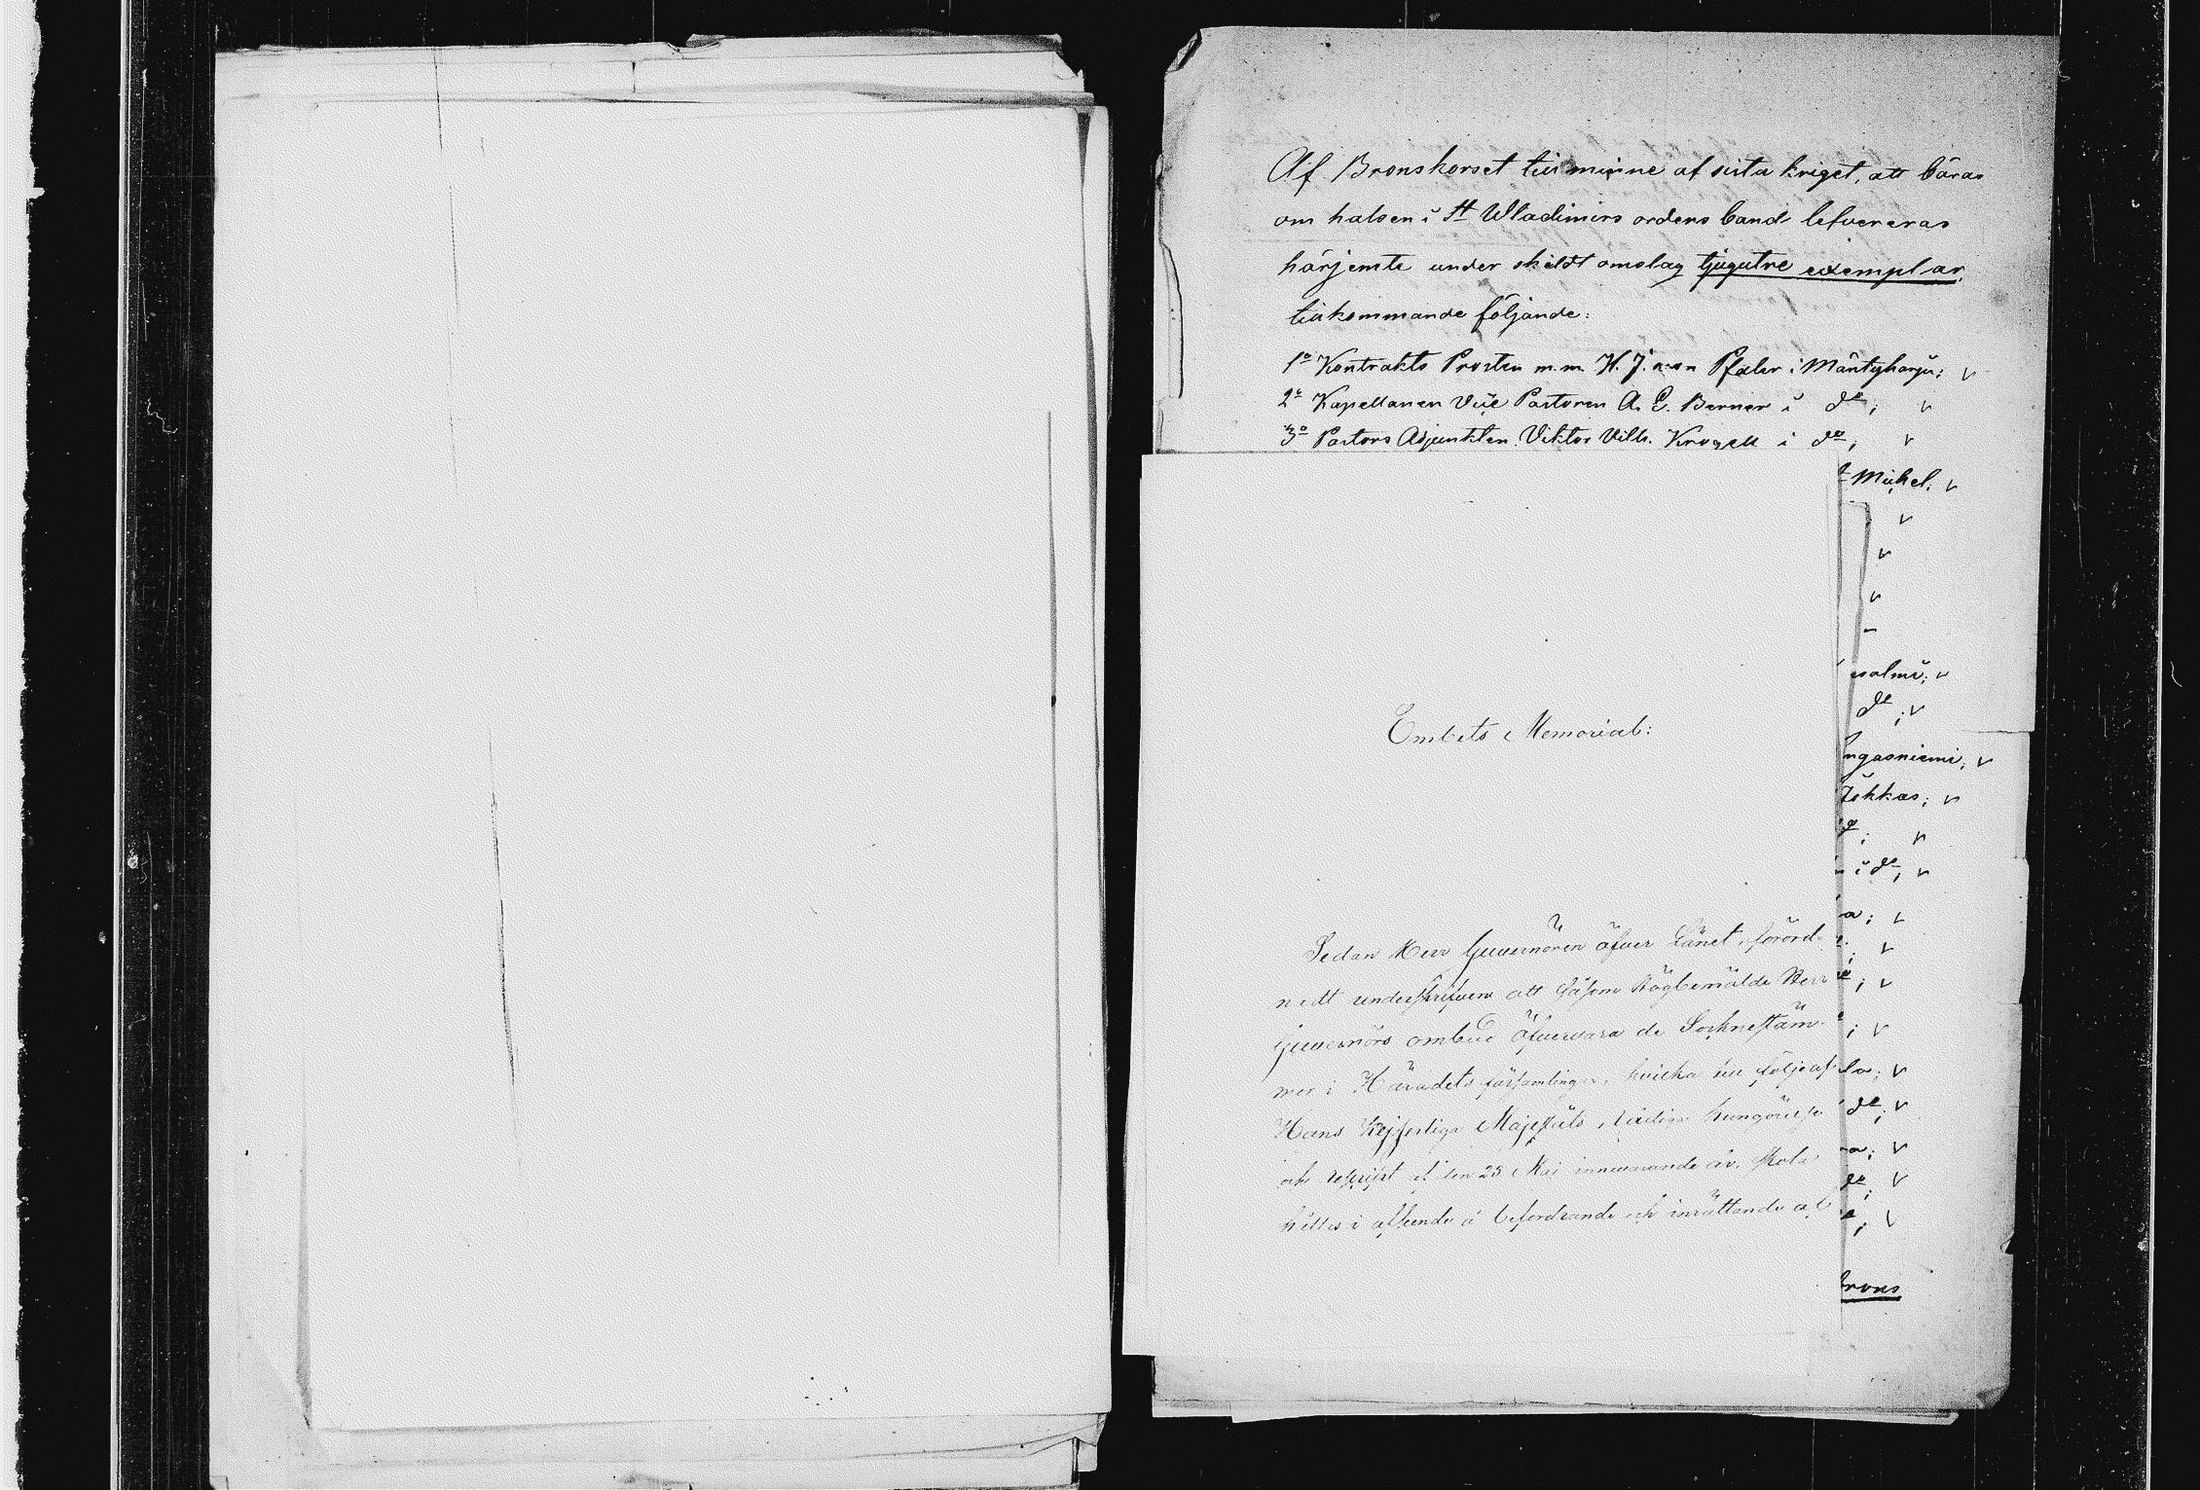 Af Bronskorset till minne af sista kriget, att bäras
om halsen i St Wladimirs ordens band lefvereras
härjemte under skildt omslag tjugutre exemplar,
tillkommande följande:
1o Kontrakts Prosten m.m. H. J. von Pfaler i Mäntyharju; v
2o Kapellanen Vice Pastoren A. E. Berner i do; v
3o Pastors Adjunkten Viktor Vilh. Krogell i do; v
t Michel; v
v
v
v
salmi; v
do; v
ngasniemi; v
Jokkas; v
; v
i do; v
a; v
; v
; v
; v
la; v
do; v
a; v
do; v
; v
brons
Embets Memorial:
Sedan Herr Guvernören öfver Länet, förord-
nadt underskrifven att såsom Högbemälde Herr
Guvernörs ombud öfvervara de Socknestäm-
mor i Häradets församlingar, hvilka till följe af
Hans Kejserliga Majestäts nådiga kungörelse
och reskript af den 23 Maj innevarande år, skola
hållas i afseende å befordrande och inrättande af